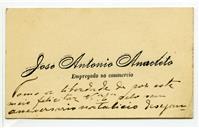 José Antonio Anacleto
Empregado no commercio
Tomo a liberdade de por este
meio felicitar V. Ex.ª pelo seu
anniversario natalicio desejan